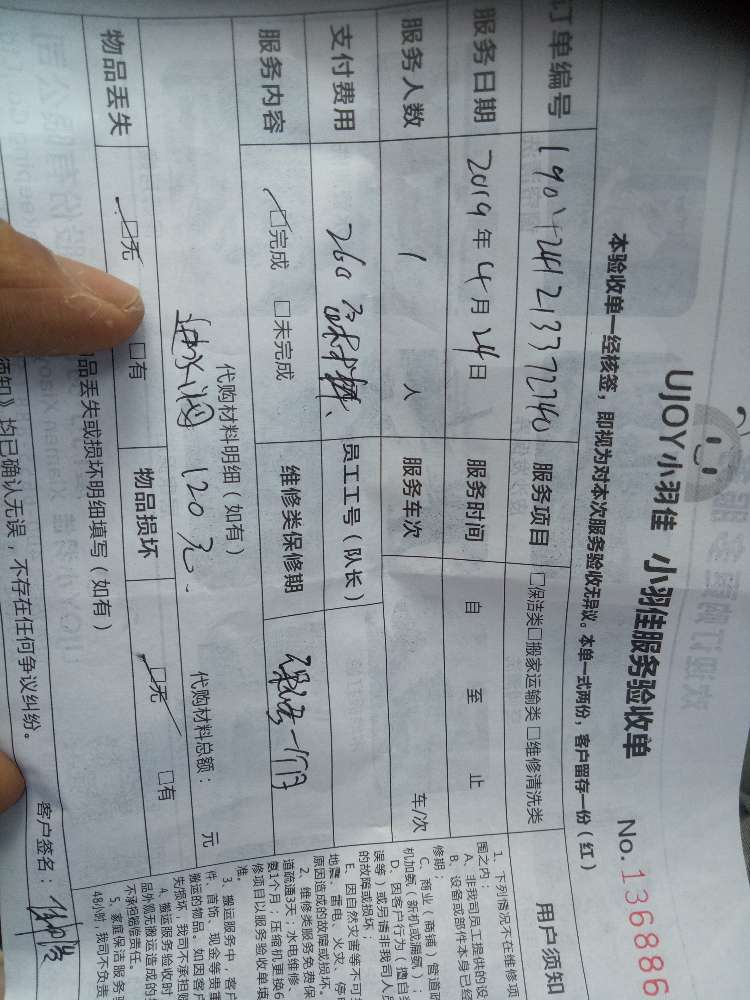 UJOY小羽佳 小羽佳服务验收单 No.136886
本验收单一经核签，即视为对本次服务验收无异议。本单一式两份，客户留存一份（红）
订单编号 服务项目 □保洁类□搬家运输类 □维修清洗类
服务日期 2019年4月24日 服务时间 自 至 止
服务人数 1 人 服务车次 车/次
支付费用 260 员工工号（队长）
服务内容 □完成 □未完成 维修类保修期
代购材料明细（如有） 代购材料总额： 元
120元.
物品丢失 □无 □有 物品损坏 □无 □有
品丢失或损坏明细填写（如有）
须知》均已确认无误，不存在任何争议纠纷。
客户签名：
用户须知
1、下列情况不在维修项
围之内：
A、非我司员工提供的设
B、设备或部件本身已经
修期；
C、商业（商铺）管道疏
机加氨（新机或漏氨）；
D、因客户行为（擅自
误等，或另请非我司人员
的故障或损坏；
E、因自然灾害等不可
地震、雷电、火灾、停电
原因造成的故障或损坏。
2、维修类服务免费保
道疏通3天；水电维修、
氨1个月；压缩机更换6
修项目以服务验收单填
准。
3、搬运服务中，客户
件、首饰、现金等贵重
搬运的物品，如因客户
失/损坏，我司不承担赔
4、搬运服务验收时
品外观无搬运造成的
不承担赔偿责任。
5、家庭保洁服务验
48小时，我司不负责